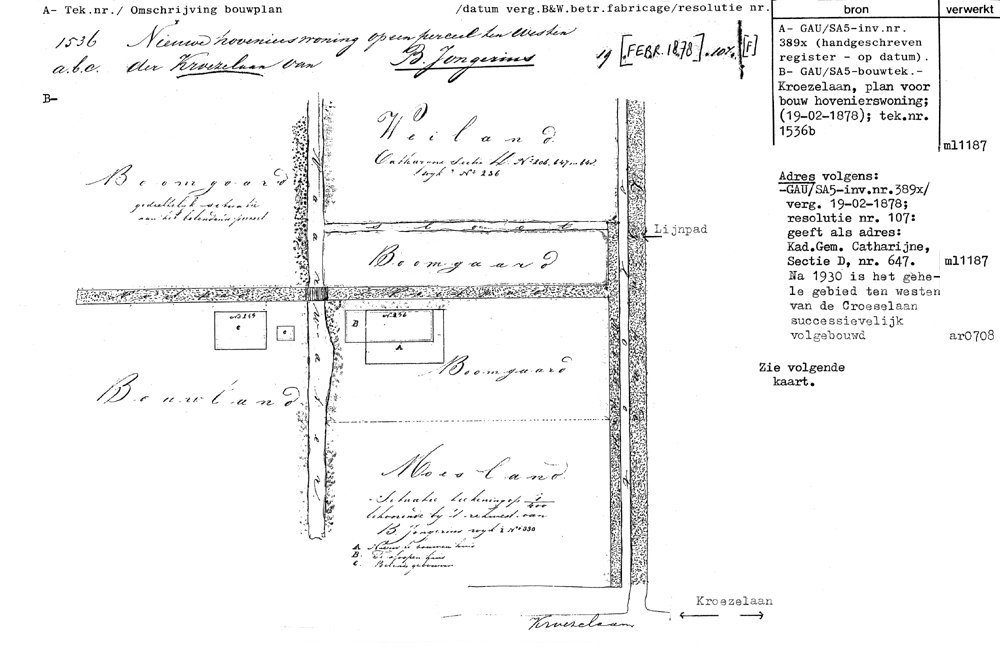 A- Tek.nr./ Omschrijving bouwplan
/datum verg.B&W.betr.fabricage/resolutie nr.
bron
verwerkt
1536 Nieuwe hovenierswoning op een perceel ten Westen
a.b.c. der Kroezelaan van B. Jongerius 19 [FEBR. 1878] 107. [F]
B-
A- GAU/SA5-inv.nr.
389x (handgeschreven
register - op datum).
B- GAU/SA5-bouwtek.-
Kroezelaan, plan voor
bouw hovenierswoning;
(19-02-1878); tek.nr.
1536b
ml1187
Adres volgens:
-GAU/SA5-inv.nr.389x/
verg. 19-02-1878;
resolutie nr. 107:
geeft als adres:
Kad.Gem. Catharijne,
Sectie D, nr. 647.
ml1187
Na 1930 is het gehe-
le gebied ten westen
van de Croeselaan
successievelijk
volgebouwd
ar0708
Zie volgende
kaart.
Weiland
Catharyne Sectie
wyk No 236
Boomgaard
gedeeltelijk situatie
van het belendende perceel
sloot
Lijnpad
Boomgaard
No 236
B
A
C
C
Boomgaard
Bouwland
Moesland
Situatie teekening op
behoorende by 't rekwest van
B. Jongerius wyk No 330
A Nieuw te bouwen huis
B. Te sloopen huis
C. gebouwen
Kroezelaan
Kroezelaan